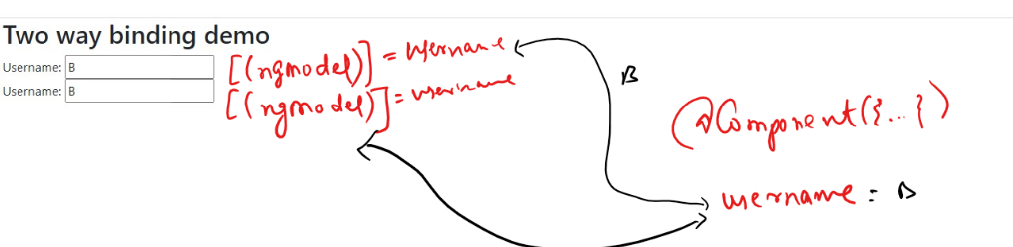 Two way binding demo
Username: B
[(ngmodel)] = username
Username: B
[(ngmodel)] = username
B
@Component({...})
username = B